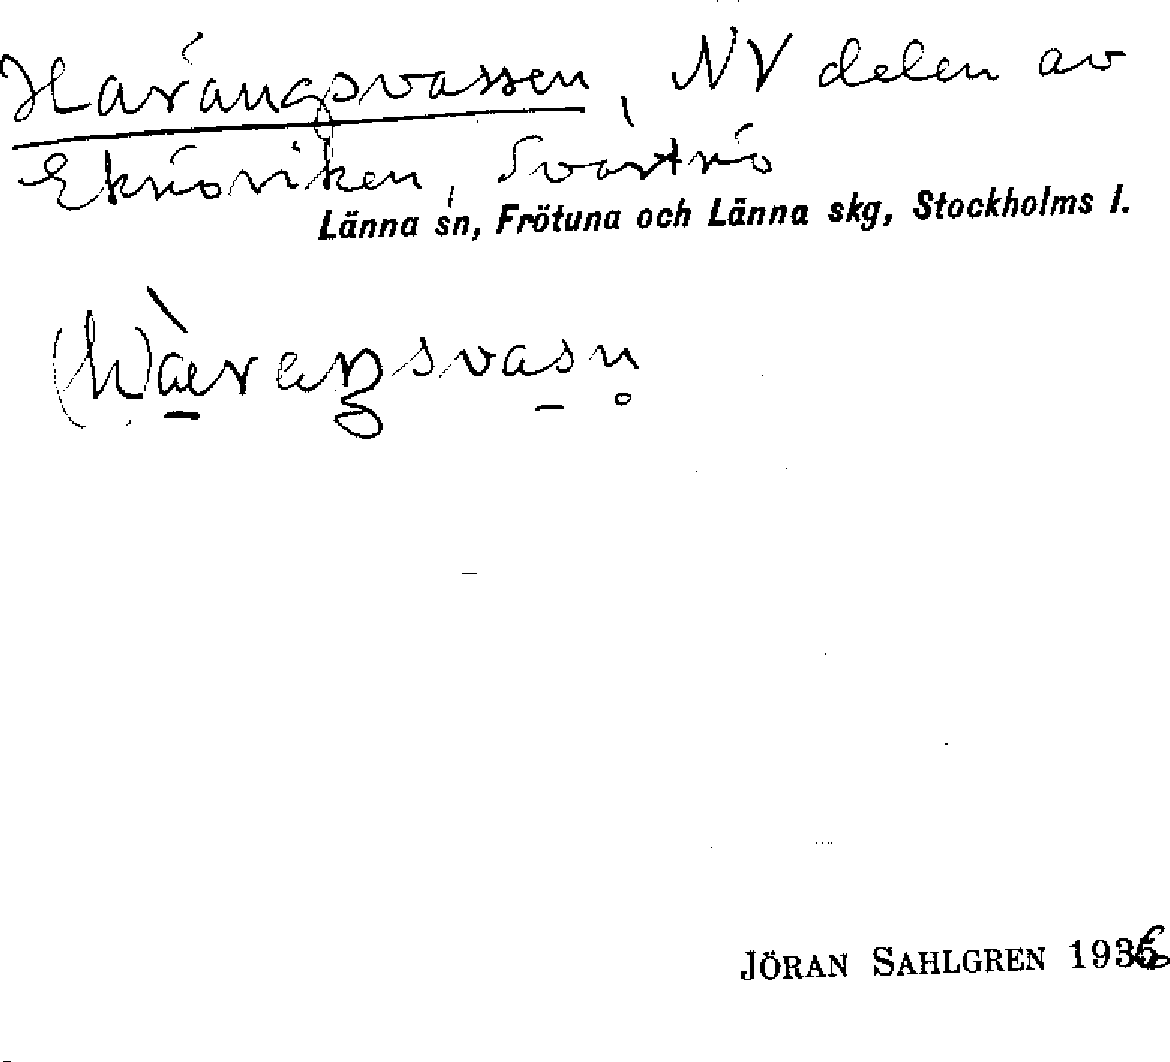 Harangsvassen, NV delen av
Ekröviken, Svartnö
Länna sn, Frötuna och Länna skg, Stockholms l.
JÖRAN SAHLGREN 1936